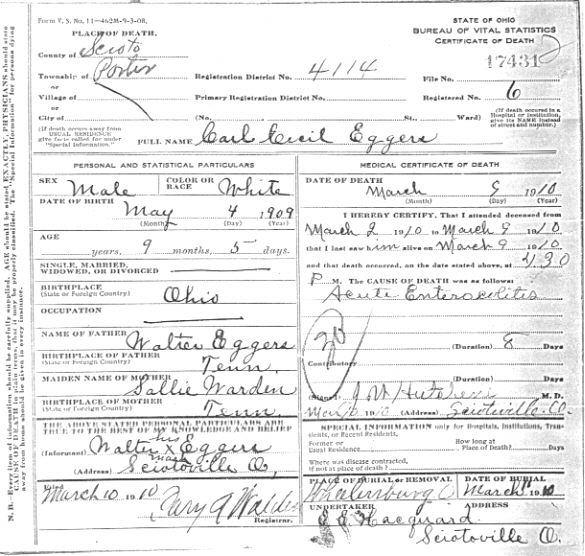 Form V. S. No. 11—462M-9-3-08.
PLACE OF DEATH.
County of Scioto
Township of Porter
or
Village of
or
City of
(If death occurs away from
USUAL RESIDENCE
give facts called for under
"Special Information.")
STATE OF OHIO
BUREAU OF VITAL STATISTICS
CERTIFICATE OF DEATH
Registration District No. 4114
File No. 17431
Primary Registration District No.
Registered No. 6
(No. St., Ward)
(If death occurred in a
Hospital or Institution,
give its NAME instead
of street and number.)
FULL NAME Carl Cecil Eggers
PERSONAL AND STATISTICAL PARTICULARS
SEX Male COLOR OR RACE White
DATE OF BIRTH
May 4 1909
(Month) (Day) (Year)
AGE
years, 9 months, 5 days.
SINGLE, MARRIED,
WIDOWED, OR DIVORCED
BIRTHPLACE
(State or Foreign Country) Ohio
OCCUPATION
NAME OF FATHER Walter Eggers
BIRTHPLACE OF FATHER
(State or Foreign Country) Tenn.
MAIDEN NAME OF MOTHER Sallie Warden
BIRTHPLACE OF MOTHER
(State or Foreign Country) Tenn
THE ABOVE STATED PERSONAL PARTICULARS ARE
TRUE TO THE BEST OF MY KNOWLEDGE AND BELIEF
his
(Informant) Walter x Eggers
mark
(Address) Sciotoville O.
Filed
March 10 1910
Registrar.
MEDICAL CERTIFICATE OF DEATH
DATE OF DEATH
March 9 1910
(Month) (Day) (Year)
I HEREBY CERTIFY, That I attended deceased from
March 2 1910 to March 9 1910
that I last saw him alive on March 9 1910
and that death occurred, on the date stated above, at 4.30
P M. The CAUSE OF DEATH was as follows:
Acute Enterocolitis
(Duration) 8 Days
Contributory
(Duration) Days
M. D.
1910 (Address) Sciotoville O.
SPECIAL INFORMATION only for Hospitals, Institutions, Tran-
sients, or Recent Residents.
Former or
Usual Residence
How long at
Place of Death? Days
Where was disease contracted,
if not at place of death?
PLACE OF BURIAL OR REMOVAL DATE OF BURIAL
Wheelersburg O March 1910
UNDERTAKER ADDRESS
Hacquard Sciotoville O.
N. B.—Every item of information should be carefully supplied. AGE should be stated EXACTLY. PHYSICIANS should state
CAUSE OF DEATH in plain terms, that it may be properly classified. The "Special Information" for persons dying
away from home should be given in every instance.